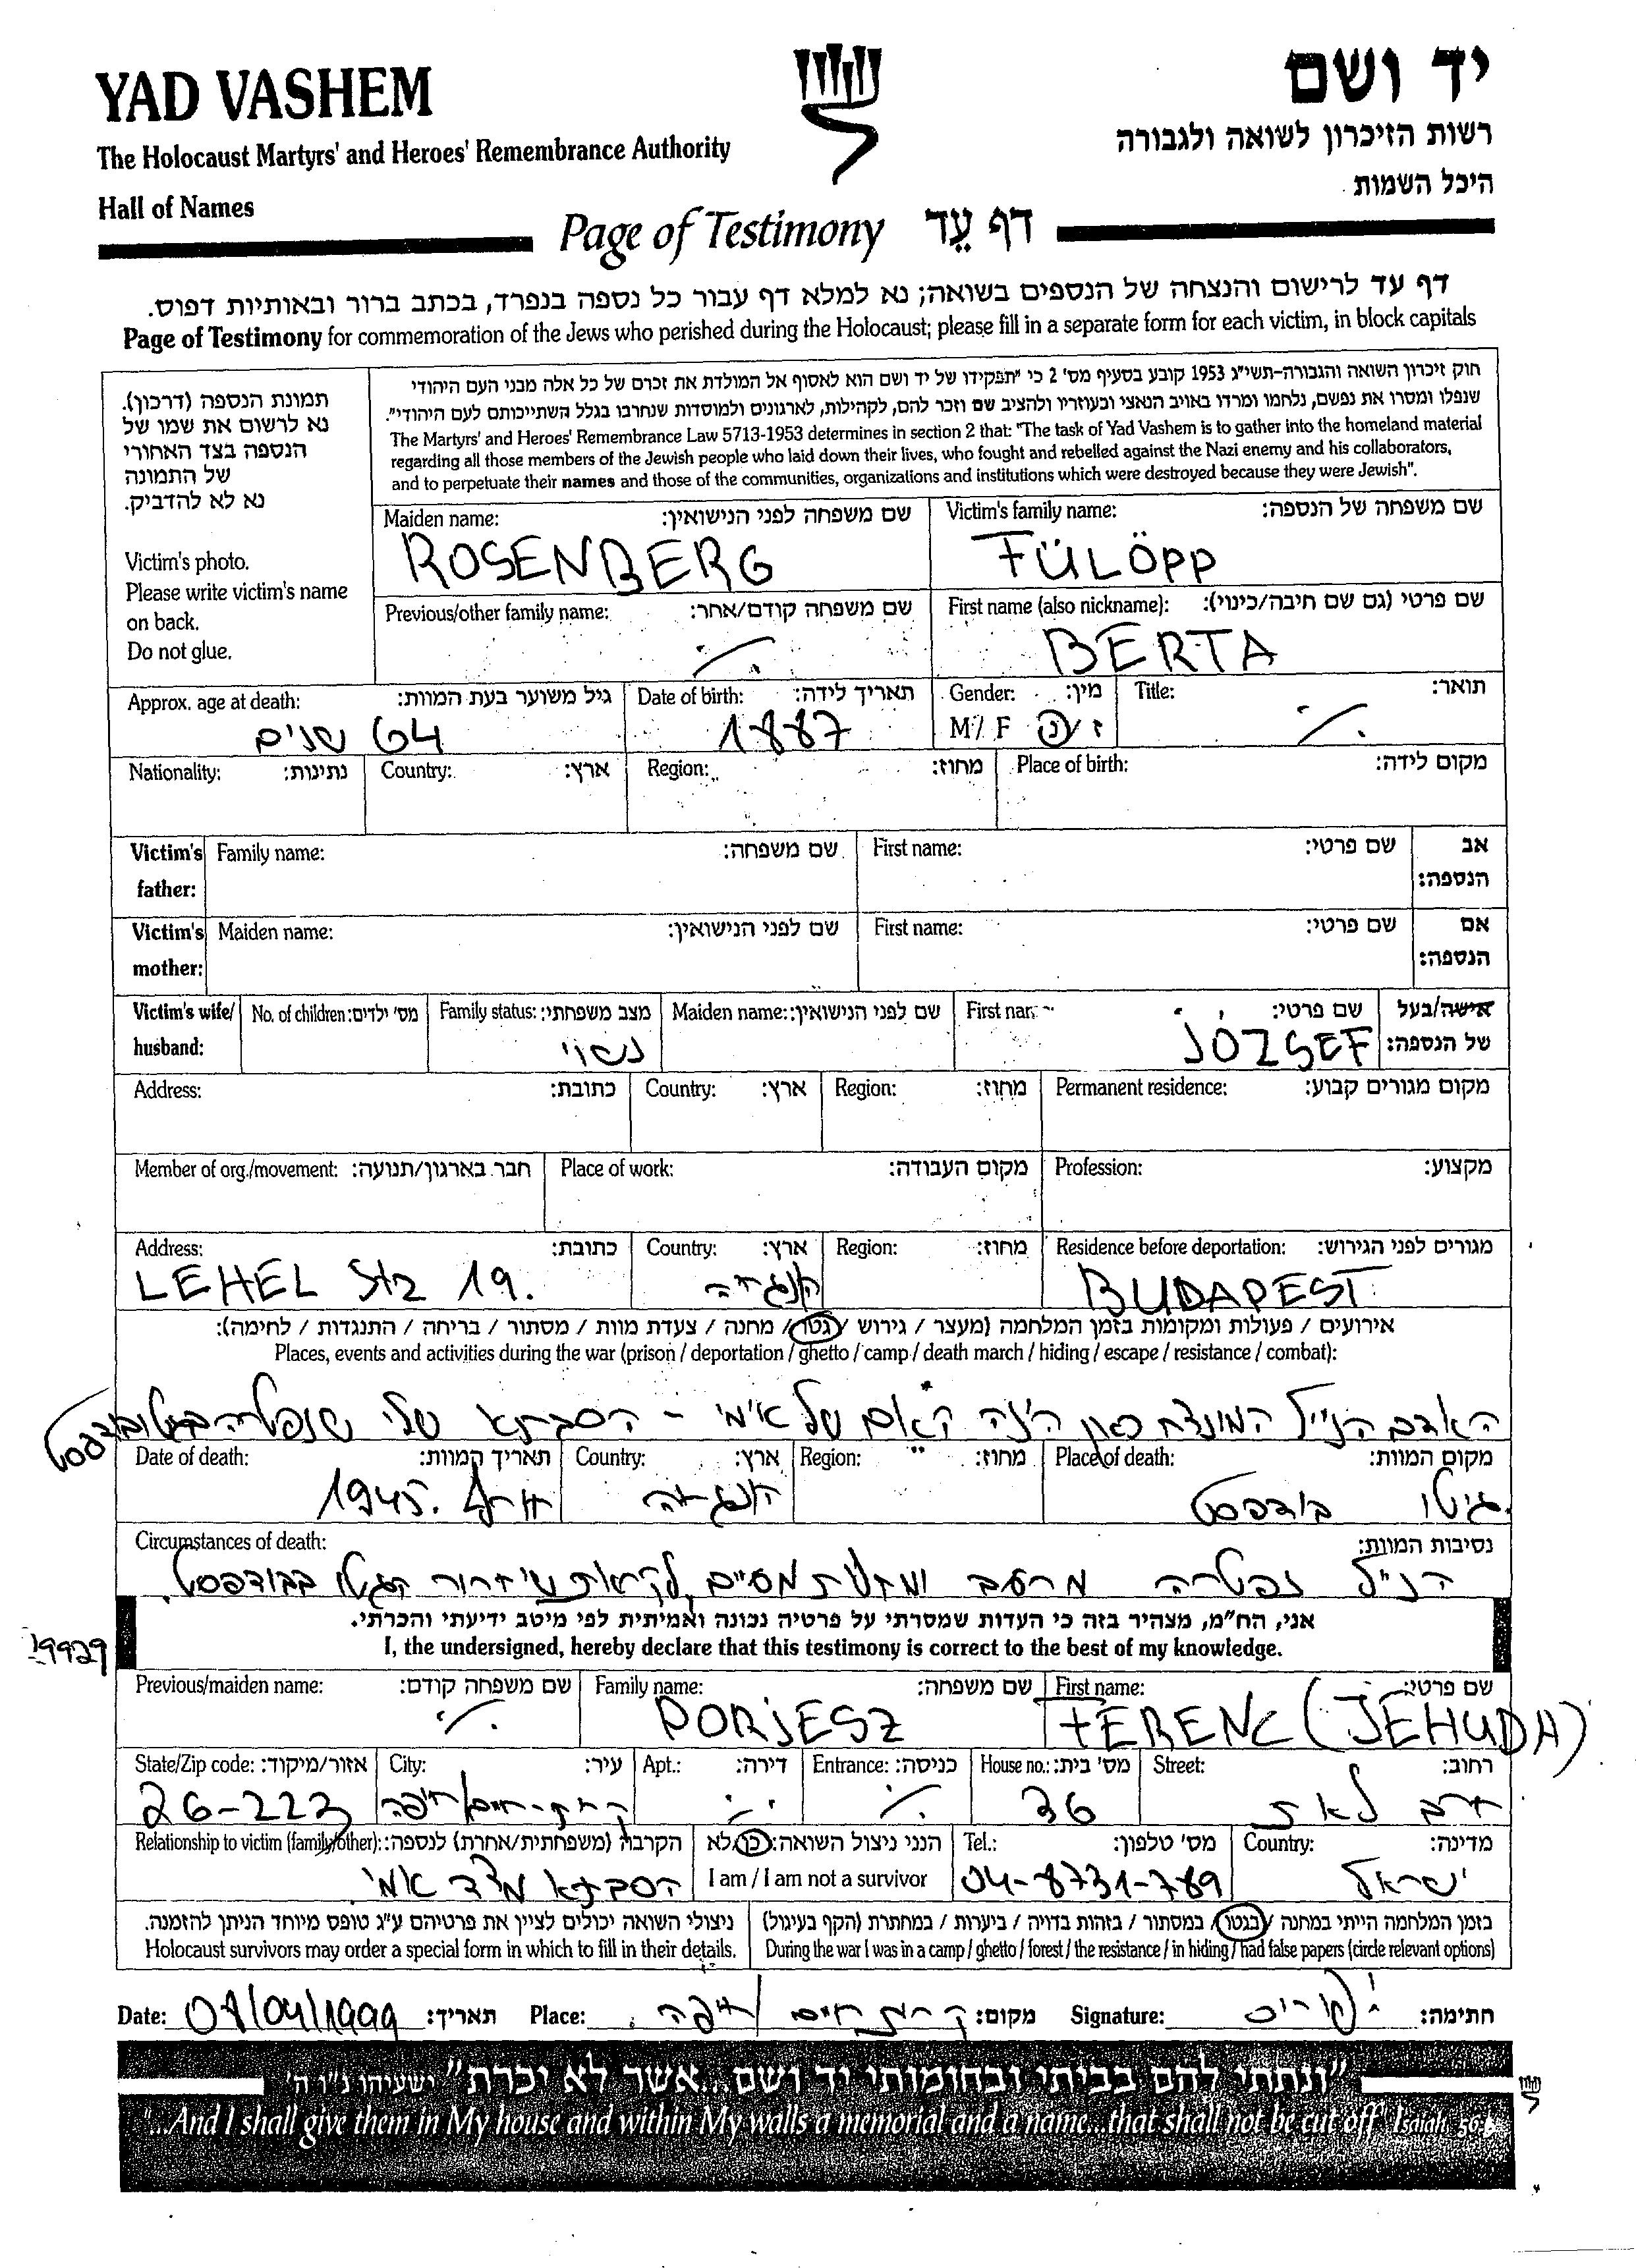 YAD VASHEM
יד ושם
The Holocaust Martyrs' and Heroes' Remembrance Authority
רשות הזיכרון לשואה ולגבורה
Hall of Names
היכל השמות
Page of Testimony דף עֵד
דף עד לרישום והנצחה של הנספים בשואה; נא למלא דף עבור כל נספה בנפרד, בכתב ברור ובאותיות דפוס.
Page of Testimony for commemoration of the Jews who perished during the Holocaust; please fill in a separate form for each victim, in block capitals
תמונת הנספה (דרכון).
נא לרשום את שמו של
הנספה בצד האחורי
של התמונה
נא לא להדביק.
Victim's photo.
Please write victim's name
on back.
Do not glue.
חוק זיכרון השואה והגבורה-תשי"ג 1953 קובע בסעיף מס' 2 כי "תפקידו של יד ושם הוא לאסוף אל המולדת את זכרם של כל אלה מבני העם היהודי
שנפלו ומסרו את נפשם, נלחמו ומרדו באויב הנאצי ובעוזריו ולהציב שם וזכר להם, לקהילות, לארגונים ולמוסדות שנחרבו בגלל השתייכותם לעם היהודי".
The Martyrs' and Heroes' Remembrance Law 5713-1953 determines in section 2 that: "The task of Yad Vashem is to gather into the homeland material
regarding all those members of the Jewish people who laid down their lives, who fought and rebelled against the Nazi enemy and his collaborators,
and to perpetuate their names and those of the communities, organizations and institutions which were destroyed because they were Jewish".
Maiden name: שם משפחה לפני הנישואין: Victim's family name: שם משפחה של הנספה:
ROSENBERG FÜLÖPP
Previous/other family name: שם משפחה קודם/אחר: First name (also nickname): שם פרטי (גם שם חיבה/כינוי):
BERTA
Approx. age at death: גיל משוער בעת המוות: Date of birth: תאריך לידה: Gender: מין: Title: תואר:
64 שנים 1887 M / F ז / נ
Nationality: נתינות: Country: ארץ: Region: מחוז: Place of birth: מקום לידה:
Victim's father: Family name: שם משפחה: First name: שם פרטי: אב הנספה:
Victim's mother: Maiden name: שם לפני הנישואין: First name: שם פרטי: אם הנספה:
Victim's wife/ husband: No. of children: מס' ילדים: Family status: מצב משפחתי: Maiden name: שם לפני הנישואין: First name שם פרטי: אישה/בעל של הנספה:
נשוי JÓZSEF
Address: כתובת: Country: ארץ: Region: מחוז: Permanent residence: מקום מגורים קבוע:
Member of org./movement: חבר בארגון/תנועה: Place of work: מקום העבודה: Profession: מקצוע:
Address: כתובת: Country: ארץ: Region: מחוז: Residence before deportation: מגורים לפני הגירוש:
LEHEL Str 19. הונגריה BUDAPEST
אירועים / פעולות ומקומות בזמן המלחמה (מעצר / גירוש / גטו / מחנה / צעדת מוות / מסתור / בריחה / התנגדות / לחימה):
Places, events and activities during the war (prison / deportation / ghetto / camp / death march / hiding / escape / resistance / combat):
האדם הנ"ל המונצח כאן הינה האם של אימי - הסבתא שלי שנפטרה בגיטו בודפסט
Date of death: תאריך המוות: Country: ארץ: Region: מחוז: Place of death: מקום המוות:
חורף 1945. הונגריה גיטו בודפסט
Circumstances of death: נסיבות המוות:
הנ"ל נפטרה מרעב ומזלת מסיים לקראת שיחרור הגטו בבודפסט.
אני, הח"מ, מצהיר בזה כי העדות שמסרתי על פרטיה נכונה ואמיתית לפי מיטב ידיעתי והכרתי.
I, the undersigned, hereby declare that this testimony is correct to the best of my knowledge.
19929
Previous/maiden name: שם משפחה קודם: Family name: שם משפחה: First name: שם פרטי:
PORJESZ FERENC (JEHUDA)
State/Zip code: אזור/מיקוד: City: עיר: Apt.: דירה: Entrance: כניסה: House no.: מס' בית: Street: רחוב:
26-223 קרית-חיים/חיפה 36 דרב לאות
Relationship to victim (family/other): הקרבה (משפחתית/אחרת) לנספה: הנני ניצול השואה: כן/לא Tel.: מס' טלפון: Country: מדינה:
הסבתא מצד אמי I am / I am not a survivor 04-8731-789 ישראל
ניצולי השואה יכולים לציין את פרטיהם ע"ג טופס מיוחד הניתן להזמנה. בזמן המלחמה הייתי במחנה / בגטו / במסתור / בזהות בדויה / ביערות / במחתרת (הקף בעיגול)
Holocaust survivors may order a special form in which to fill in their details. During the war I was in a camp / ghetto / forest / the resistance / in hiding / had false papers (circle relevant options)
Date: 07/04/1999 תאריך: Place: קרית חיים / חיפה מקום: Signature: חתימה:
"ונתתי להם בביתי ובחומותי יד ושם...אשר לא יכרת" ישעיהו נ"ו ה'
"...And I shall give them in My house and within My walls a memorial and a name...that shall not be cut off" Isaiah 56:5